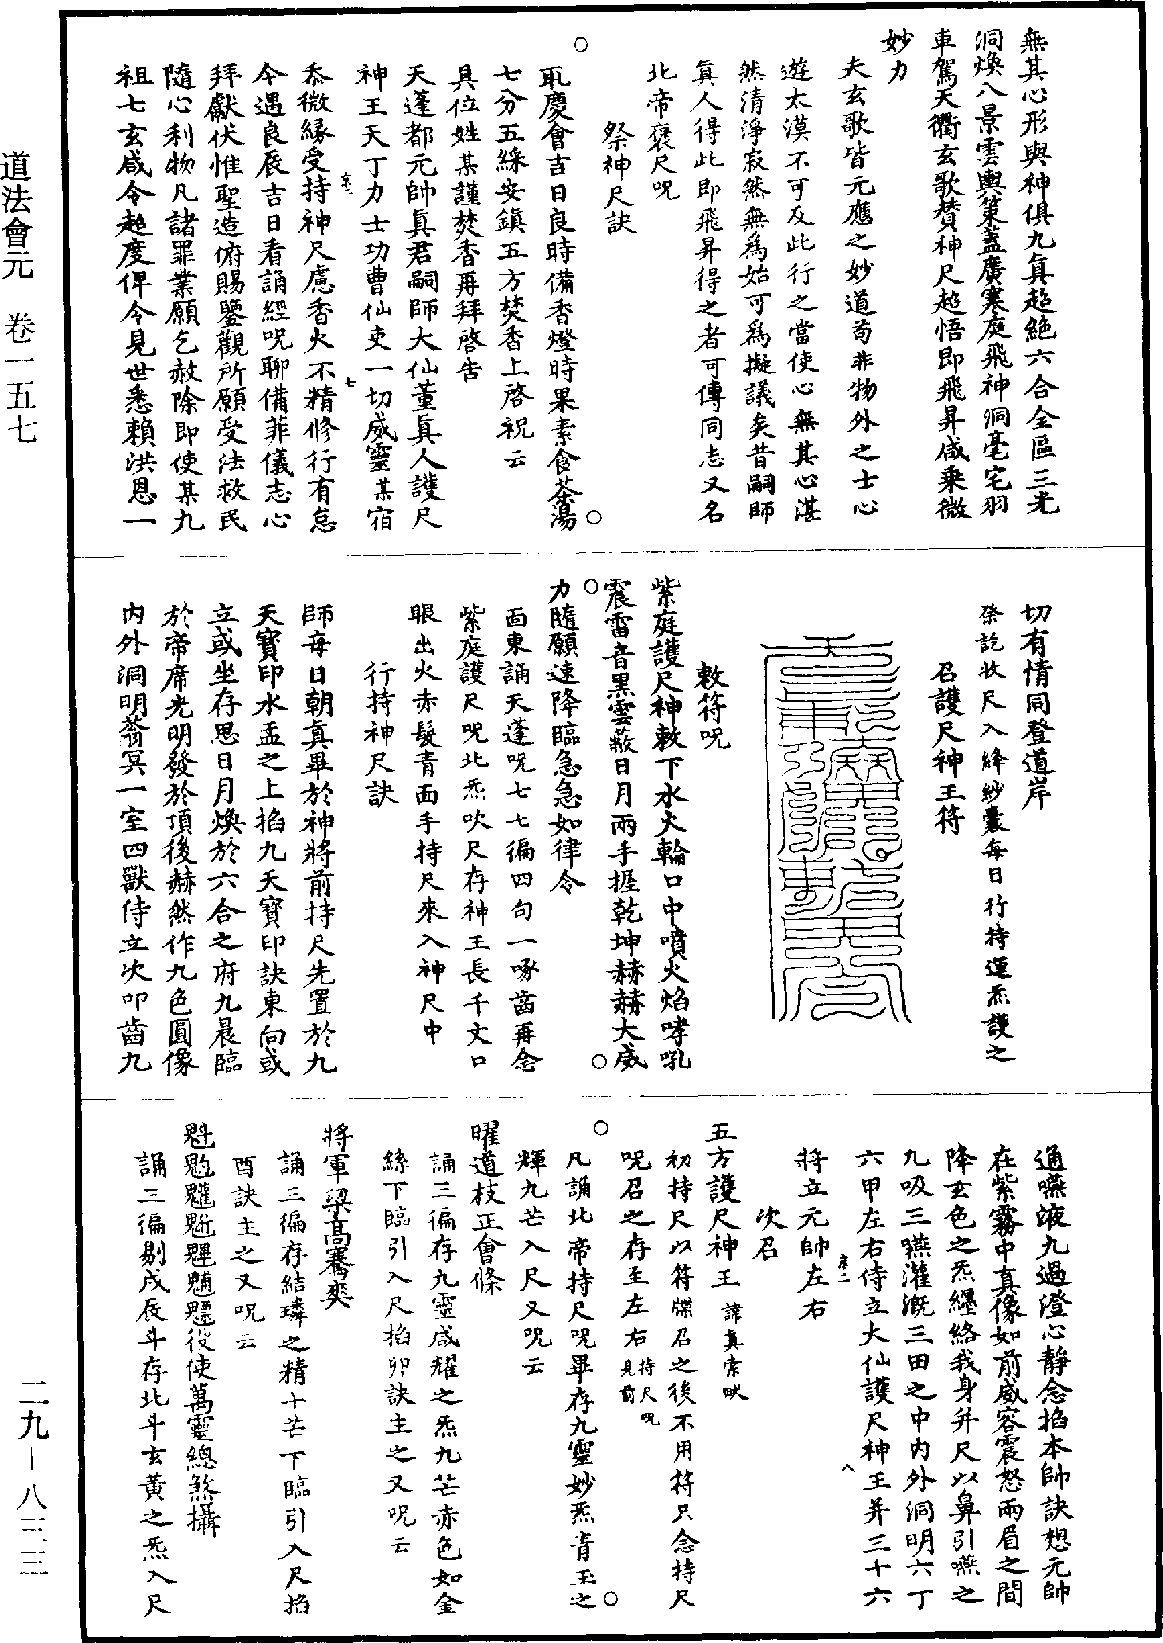 無其心形與神俱九真超絕六合全區三光
洞煥八景雲輿策蓋廣寒庭飛神洞毫宅羽
車駕天衢玄歌贊神尺超悟即飛昇咸乘微
妙力
夫玄歌皆元應之妙道苟非物外之士心
遊太漠不可及此行之當使心無其心湛
然清淨寂然無為始可為擬議矣昔嗣師
真人得此即飛昇得之者可傳同志又名
北帝褒尺呪
祭神尺訣
取慶會吉日良時備香燈時果素食茶湯
七分五綵安鎮五方焚香上啓祝云
具位姓某謹焚香再拜啓告
天蓬都元帥真君嗣師大仙董真人護尺
神王天丁力士功曹仙吏一切威靈某宿
忝微緣受持神尺慮香火不精修行有怠
今遇良辰吉日看誦經呪聊備菲儀志心
拜獻伏惟聖造俯賜鑒觀所願受法救民
隨心利物凡諸罪業願乞赦除即使某九
祖七玄咸令超度俾今見世悉賴洪恩一
切有情同登道岸
祭訖收尺入絳紗囊每日行持運炁護之
召護尺神王符
敕符呪
紫庭護尺神敕下水火輪口中噴火焰哮吼
震雷音黑雲蔽日月兩手握乾坤赫赫大威
力隨願速降臨急急如律令
面東誦天蓬呪七七徧四句一啄齒再念
紫庭護尺呪北炁吹尺存神王長千丈口
眼出火赤髮青面手持尺來入神尺中
行持神尺訣
師每日朝真畢於神將前持尺先置於九
天寶印水盂之上掐九天寶印訣東向或
立或坐存思日月煥於六合之府九晨臨
於帝席光明發於頂後赫然作九色圓像
內外洞明蓊冥一室四獸侍立次叩齒九
通嚥液九過澄心靜念掐本帥訣想元帥
在紫霧中真像如前威容震怒兩眉之間
降玄色之炁纏絡我身并尺以鼻引嚥之
九吸三嚥灌溉三田之中內外洞明六丁
六甲左右侍立大仙護尺神王并三十六
將立元帥左右
次召
五方護尺神王 諱真索映
初持尺以符牒召之後不用符只念持尺
呪召之存至左右持尺呪見前
凡誦北帝持尺呪畢存九靈妙炁青玉之
輝九芒入尺又呪云
曜道枝正會條
誦三徧存九靈咸耀之炁九芒赤色如金
絲下臨引入尺掐卯訣主之又呪云
將軍梁高騫奕
誦三徧存結璘之精十芒下臨引入尺掐
酉訣主之又呪云
役使萬靈總煞攝
誦三徧剔戌辰斗存北斗玄黃之炁入尺
道法會元 卷一五七
二九－八三三